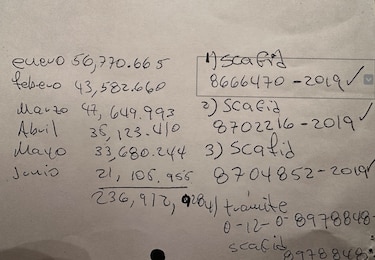 enero 56,770.665
febrero 43,582.660
Marzo 47,649.993
Abril 35,123.410
Mayo 33,680.244
Junio 21,105.956
236,912,928
1) Scafid
8666470-2019 ✓
2) Scafid
8702216-2019 ✓
3) Scafid
8704852-2019 ✓
4) trámite
0-12-0-8978848-
scafid
8978848